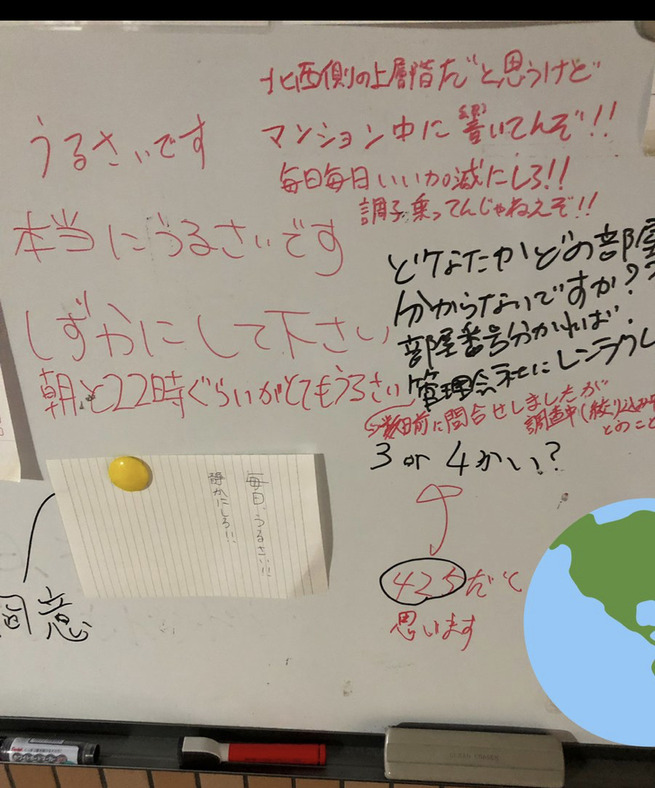 うるさいです
本当にうるさいです
しずかにして下さい
朝と22時ぐらいがとてもうるさい
北西側の上層階だと思うけど
マンション中に響いてんぞ!!
毎日毎日いい加減にしろ!!
調子乗ってんじゃねえぞ!!
どなたかどの部屋
分からないですか?
部屋番号分かれば
管理会社にレンラク
数日前に問合せしましたが
調査中(絞り込み中
とのこと
3 or 4かい?
425だと
思います
毎日、うるさい!!
静かにしろ!!
同意